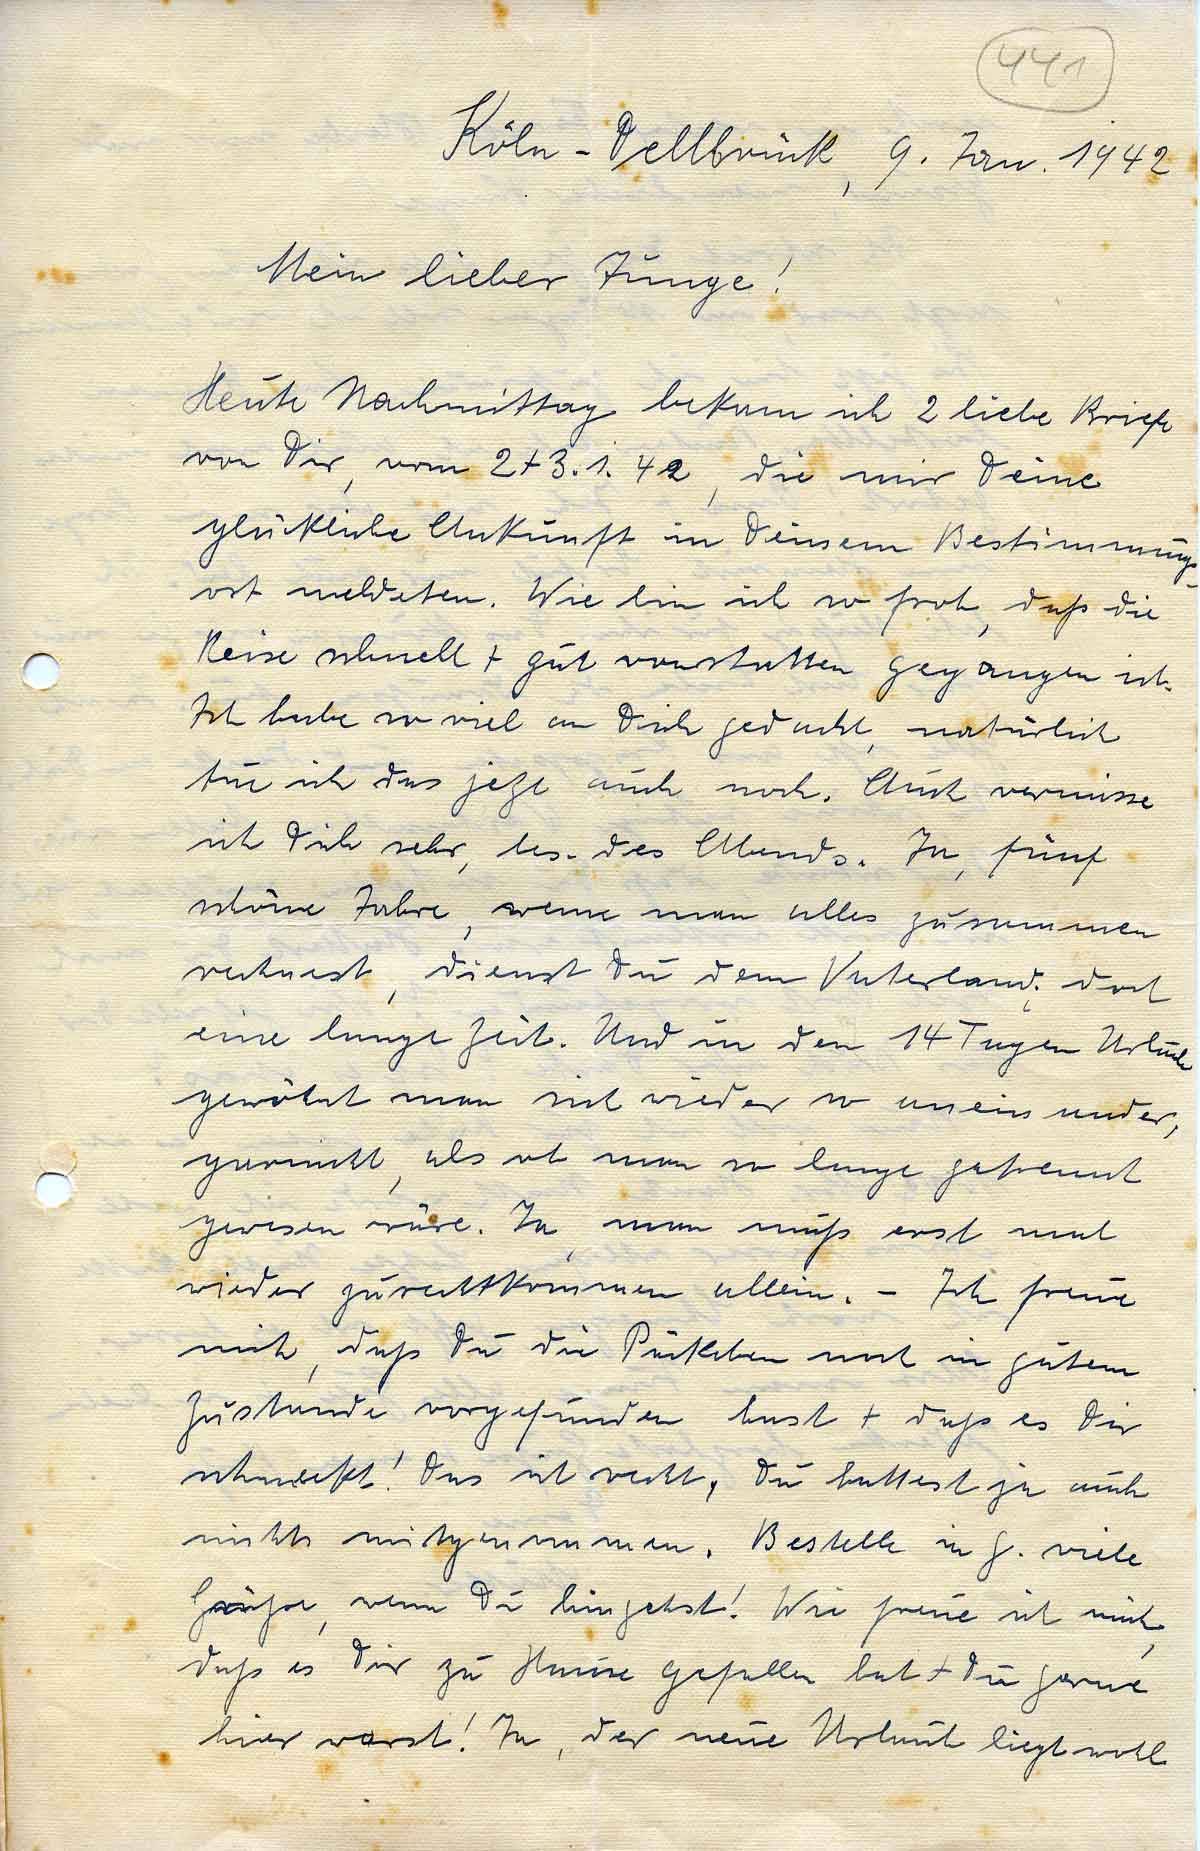 441
Köln-Dellbrück, 9. Jan. 1942
Mein lieber Junge!
Heute Nachmittag bekam ich 2 liebe Briefe
von Dir, vom 2+3.1.42, die mir Deine
glückliche Ankunft in Deinem Bestimmungs-
ort meldeten. Wie bin ich so froh, daß die
Reise schnell + gut vonstatten gegangen ist.
Ich habe so viel an Dich gedacht, natürlich
tue ich das jetzt auch noch. Auch vermisse
ich Dich sehr, bes. des Abends. Ja, fünf
schöne Jahre, wenn man alles zusammen
rechnest, dienst Du dem Vaterland, doch
eine lange Zeit. Und in den 14 Tagen Urlaub
gewöhnt man sich wieder so aneinander,
garnicht, als ob man so lange getrennt
gewesen wäre. Ja, man muß erst mal
wieder zurechtkommen allein. - Ich freue
mich, daß Du die Päckchen noch in gutem
Zustande vorgefunden hast + daß es Dir
schmeckt! Das ist recht, Du hattest ja auch
nichts mitgenommen. Bestelle in G. viele
Grüße, wenn Du hingehst! Wie freue ich mich,
daß es Dir zu Hause gefallen hat + Du gerne
hier warst! Ja, der neue Urlaub liegt wohl